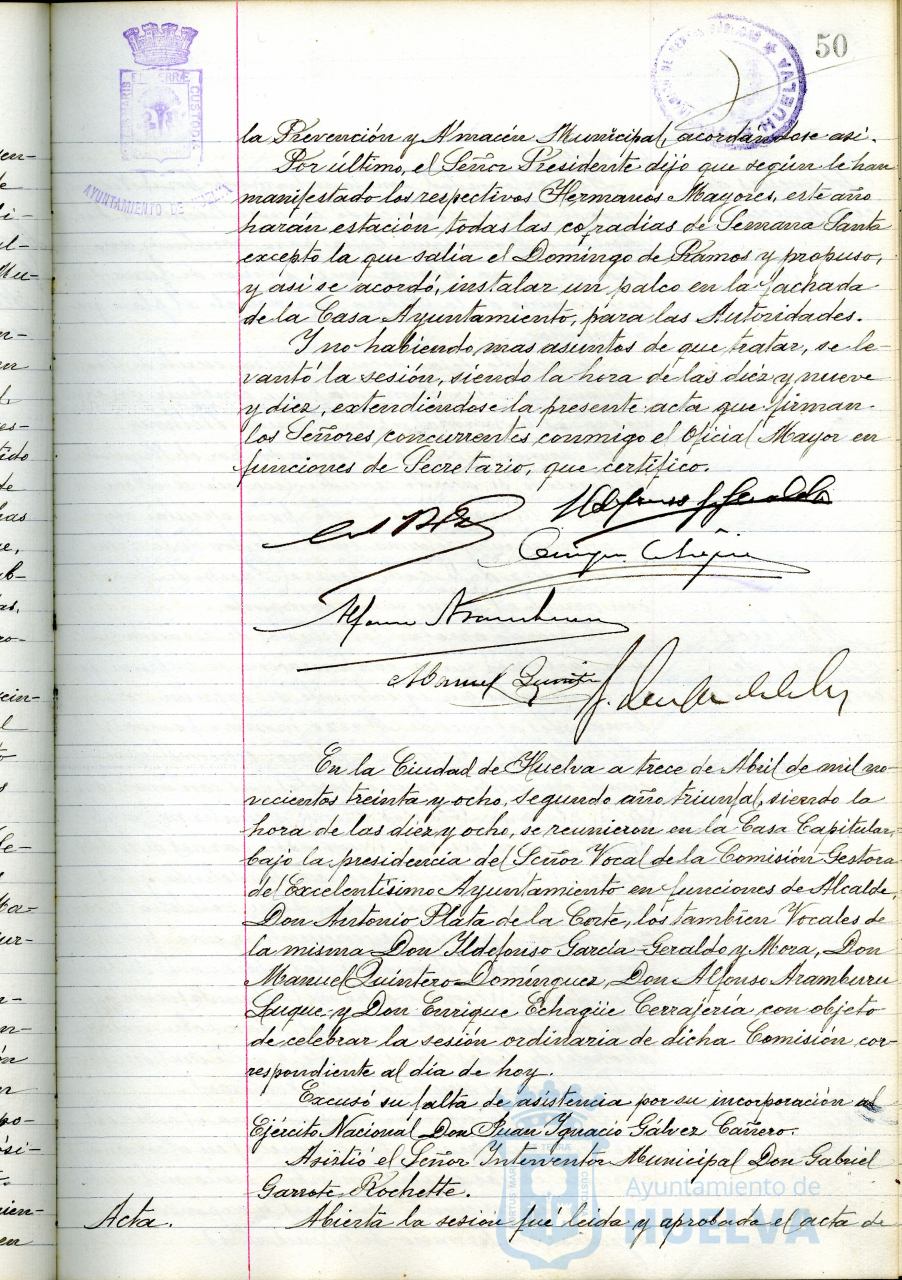 50
AYUNTAMIENTO DE HUELVA
HUELVA
la Prevención y Almacén Municipal, acordándose así.
Por último, el Señor Presidente dijo que según le han
manifestado los respectivos Hermanos Mayores, este año
harán estación todas las cofradías de Semana Santa
excepto la que salía el Domingo de Ramos y propuso,
y así se acordó, instalar un palco en la fachada
de la Casa Ayuntamiento, para las Autoridades.
Y no habiendo mas asuntos de que tratar, se le-
vantó la sesión, siendo la hora de las diez y nueve
y diez, extendiéndose la presente acta que firman
los Señores concurrentes conmigo el Oficial Mayor en
funciones de Secretario, que certifico.
Manuel Quintero
En la Ciudad de Huelva a trece de Abril de mil no-
vecientos treinta y ocho, segundo año triunfal, siendo la
hora de las diez y ocho, se reunieron en la Casa Capitular,
bajo la presidencia del Señor Vocal de la Comisión Gestora
del Excelentísimo Ayuntamiento en funciones de Alcalde,
Don Antonio Plata de la Corte, los tambien Vocales de
la misma Don Ildefonso García Geraldo y Mora, Don
Manuel Quintero Domínguez, Don Alfonso Aramburu
Luque y Don Enrique Echagüe Cerrajería con objeto
de celebrar la sesión ordinaria de dicha Comisión cor-
respondiente al día de hoy.
Excusó su falta de asistencia por su incorporación al
Ejército Nacional Don Juan Ignacio Gálvez Cañero.
Asistió el Señor Interventor Municipal Don Gabriel
Garrote Rochette.
Acta. Abierta la sesión fué leida y aprobada el acta de
Ayuntamiento de
HUELVA